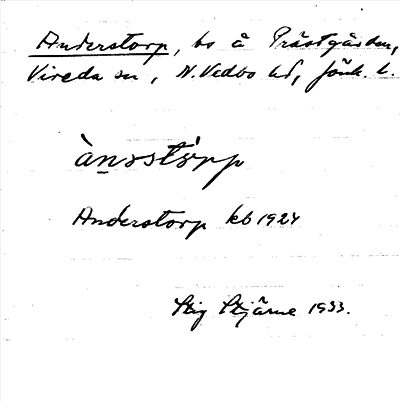 Anderstorp, bs å Prästgården,
Vireda sn, N. Vedbo hd, Jönk. l.
àn̠ɔstór̀pp
Anderstorp kb 1924
Stig Stjärne 1933.